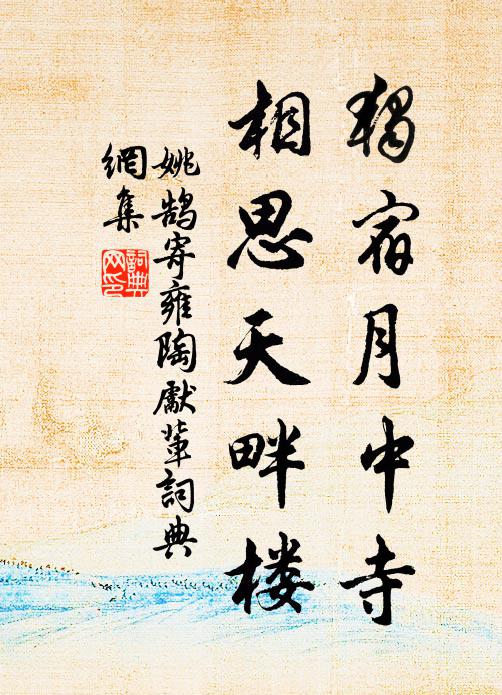 獨宿月中寺
相思天畔楼
姚鹄寄雍陶獻輩詞典
網集
詞典
网印